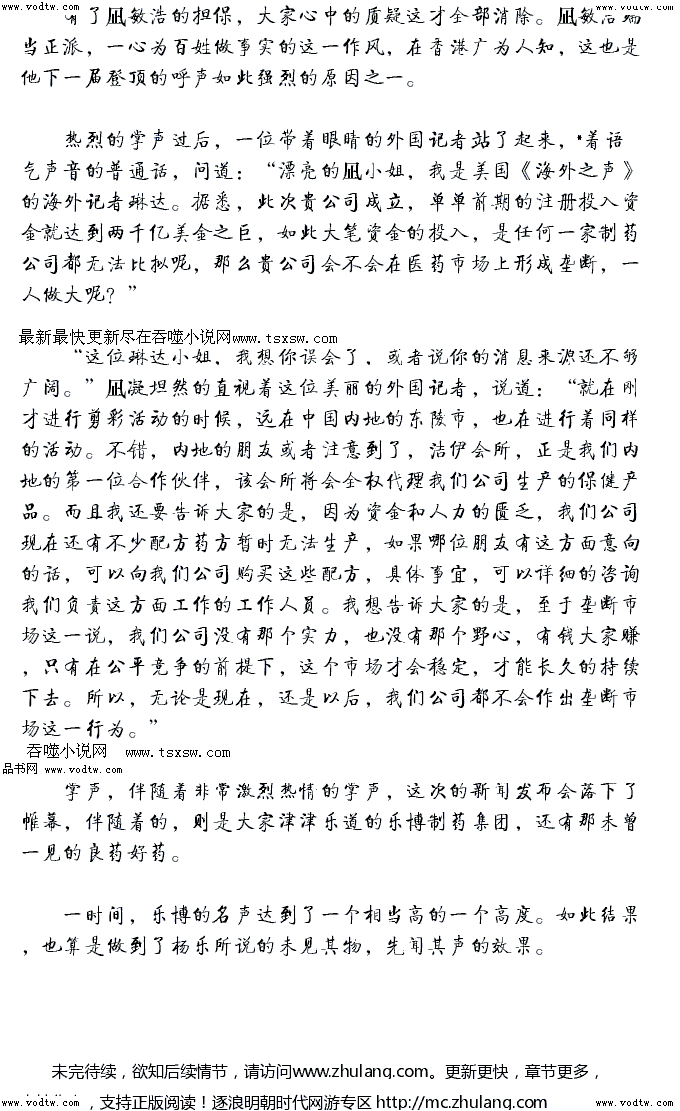 www.vodtw.com www.vodtw.com
有了凪敏浩的担保，大家心中的质疑这才全部消除。凪敏浩端
当正派，一心为百姓做事实的这一作风，在香港广为人知，这也是
他下一届登顶的呼声如此强烈的原因之一。
热烈的掌声过后，一位带着眼睛的外国记者站了起来，*着语
气声音的普通话，问道：“漂亮的凪小姐，我是美国《海外之声》
的海外记者琳达。据悉，此次贵公司成立，单单前期的注册投入资
金就达到两千亿美金之巨，如此大笔资金的投入，是任何一家制药
公司都无法比拟呢，那么贵公司会不会在医药市场上形成垄断，一
人做大呢？”
最新最快更新尽在吞噬小说网www.tsxsw.com
“这位琳达小姐，我想你误会了，或者说你的消息来源还不够
广阔。”凪凝坦然的直视着这位美丽的外国记者，说道：“就在刚
才进行剪彩活动的时候，远在中国内地的东陵市，也在进行着同样
的活动。不错，内地的朋友或者注意到了，洁伊会所，正是我们内
地的第一位合作伙伴，该会所将会全权代理我们公司生产的保健产
品。而且我还要告诉大家的是，因为资金和人力的匮乏，我们公司
现在还有不少配方药方暂时无法生产，如果哪位朋友有这方面意向
的话，可以向我们公司购买这些配方，具体事宜，可以详细的咨询
我们负责这方面工作的工作人员。我想告诉大家的是，至于垄断市
场这一说，我们公司没有那个实力，也没有那个野心，有钱大家赚
，只有在公平竞争的前提下，这个市场才会稳定，才能长久的持续
下去。所以，无论是现在，还是以后，我们公司都不会作出垄断市
场这一行为。”
吞噬小说网 www.tsxsw.com
品书网 www.vodtw.com
掌声，伴随着非常激烈热情的掌声，这次的新闻发布会落下了
帷幕，伴随着的，则是大家津津乐道的乐博制药集团，还有那未曾
一见的良药好药。
一时间，乐博的名声达到了一个相当高的一个高度。如此结果
，也算是做到了杨乐所说的未见其物，先闻其声的效果。
未完待续，欲知后续情节，请访问www.zhulang.com。更新更快，章节更多，
www.vodtw.com ，支持正版阅读！逐浪明朝时代网游专区 http://mc.zhulang.com www.vodtw.com